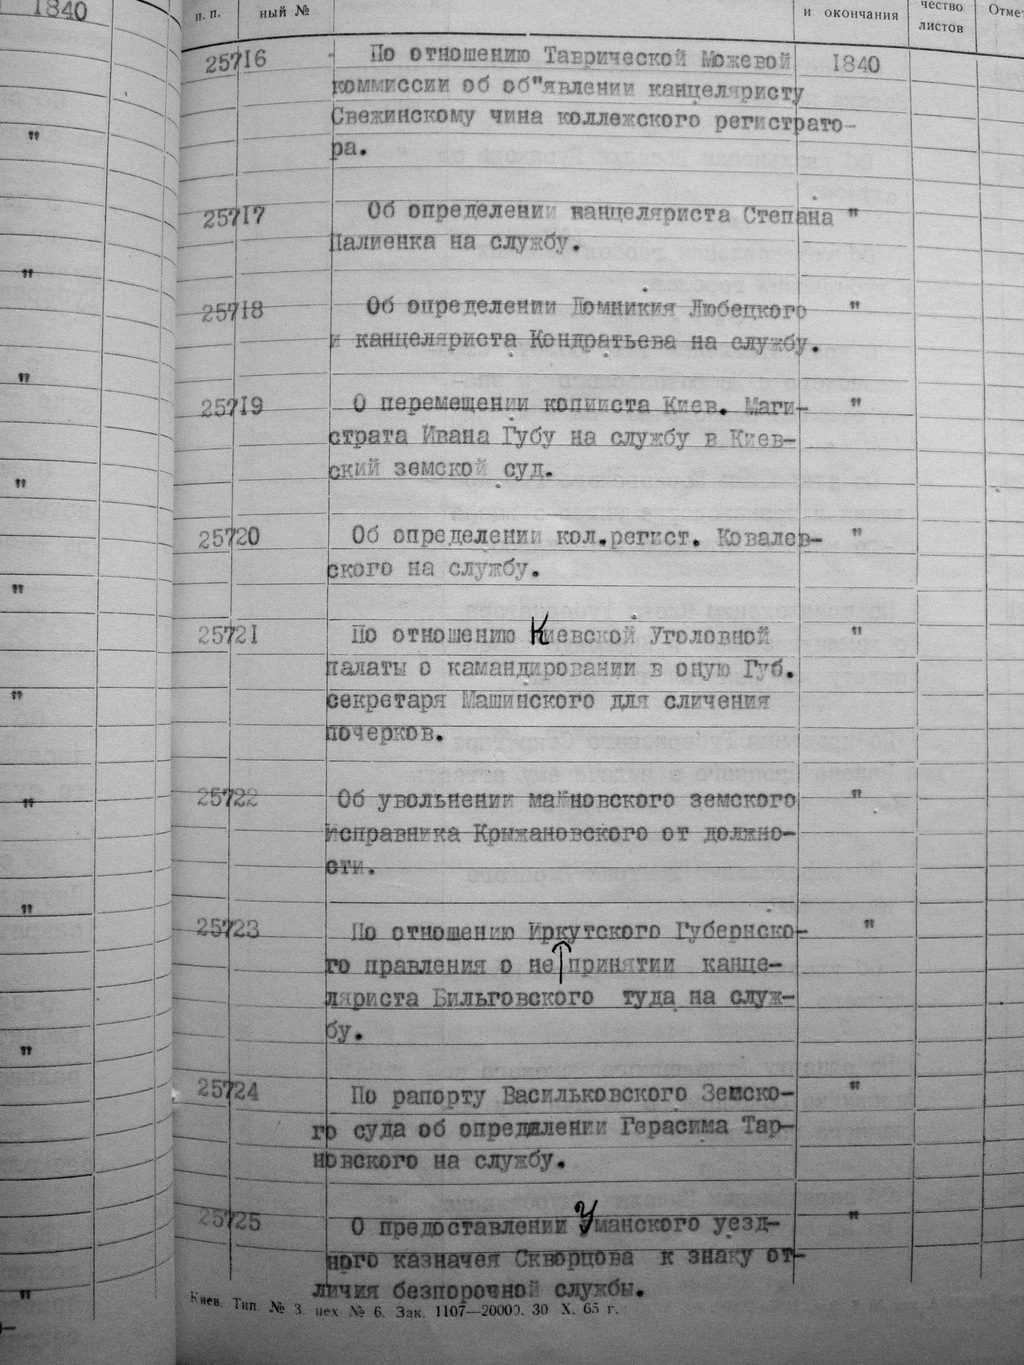 1840
п. п.
ный №
и окончания
чество
листов
Отме
25716 По отношению Таврической Межевой 1840
коммиссии об об"явлении канцеляристу
Свежинскому чина коллежского регистрато-
ра.
25717 Об определении канцеляриста Степана "
Палиенка на службу.
25718 Об определении Домникия Любецкого "
и канцеляриста Кондратьева на службу.
25719 О перемещении копииста Киев. Маги- "
страта Ивана Губу на службу в Киев-
ский земской суд.
25720 Об определении кол.регист. Ковалев- "
ского на службу.
25721 По отношению Киевской Уголовной "
палаты о камандировании в оную Губ.
секретаря Машинского для сличения
почерков.
25722 Об увольнении ма новского земского "
исправника Крыжановского от должно-
сти.
25723 По отношению Иркутского Губернско- "
го правления о не принятии канце-
ляриста Бильговского туда на служ-
бу.
25724 По рапорту Васильковского Земско- "
го суда об определении Герасима Тар-
новского на службу.
25725 О предоставлении Уманского уезд- "
ного казначея Скворцова к знаку от-
личия безпорочной службы.
Киев. Тип. № 3. цех № 6. Зак. 1107—20000. 30 X. 65 г.